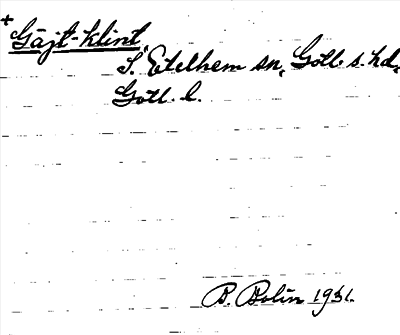 +
Gäjt-klint,
S. Etelhem sn, Gotl. s. hd,
Gotl. l.
B. Bolin 1931.